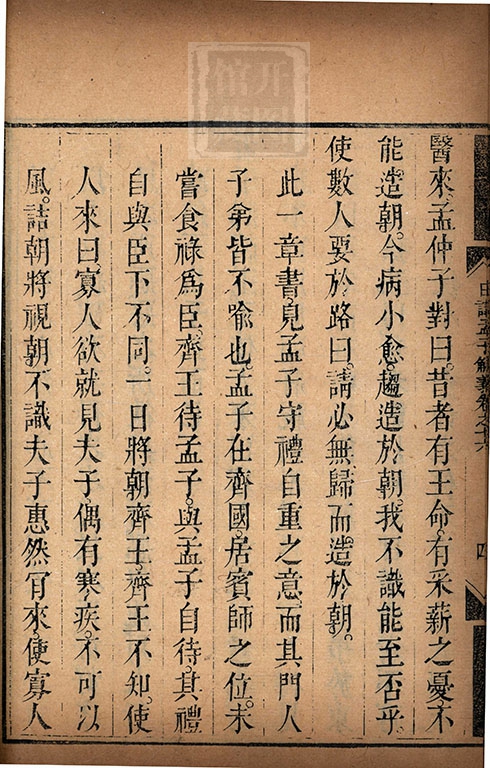 醫來。孟仲子對曰。昔者有王命。有采薪之憂。不
能造朝。今病小愈。趨造於朝。我不識能至否乎。
使數人要於路曰。請必無歸。而造於朝。
此一章書。見孟子守禮自重之意。而其門人
子弟皆不喻也。孟子在齊國。居賓師之位。未
嘗食祿爲臣。齊王待孟子。與孟子自待。其禮
自與臣下不同。一日將朝齊王。齊王不知。使
人來曰。寡人欲就見夫子。偶有寒疾。不可以
風。詰朝將視朝。不識夫子惠然肯來。使寡人
日講孟子解義卷之十六
四